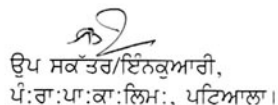 ਉਪ ਸਕੱਤਰ/ਇੰਨਕੁਆਰੀ,
ਪੰ:ਰਾ:ਪਾ:ਕਾ:ਲਿਮ:, ਪਟਿਆਲਾ।